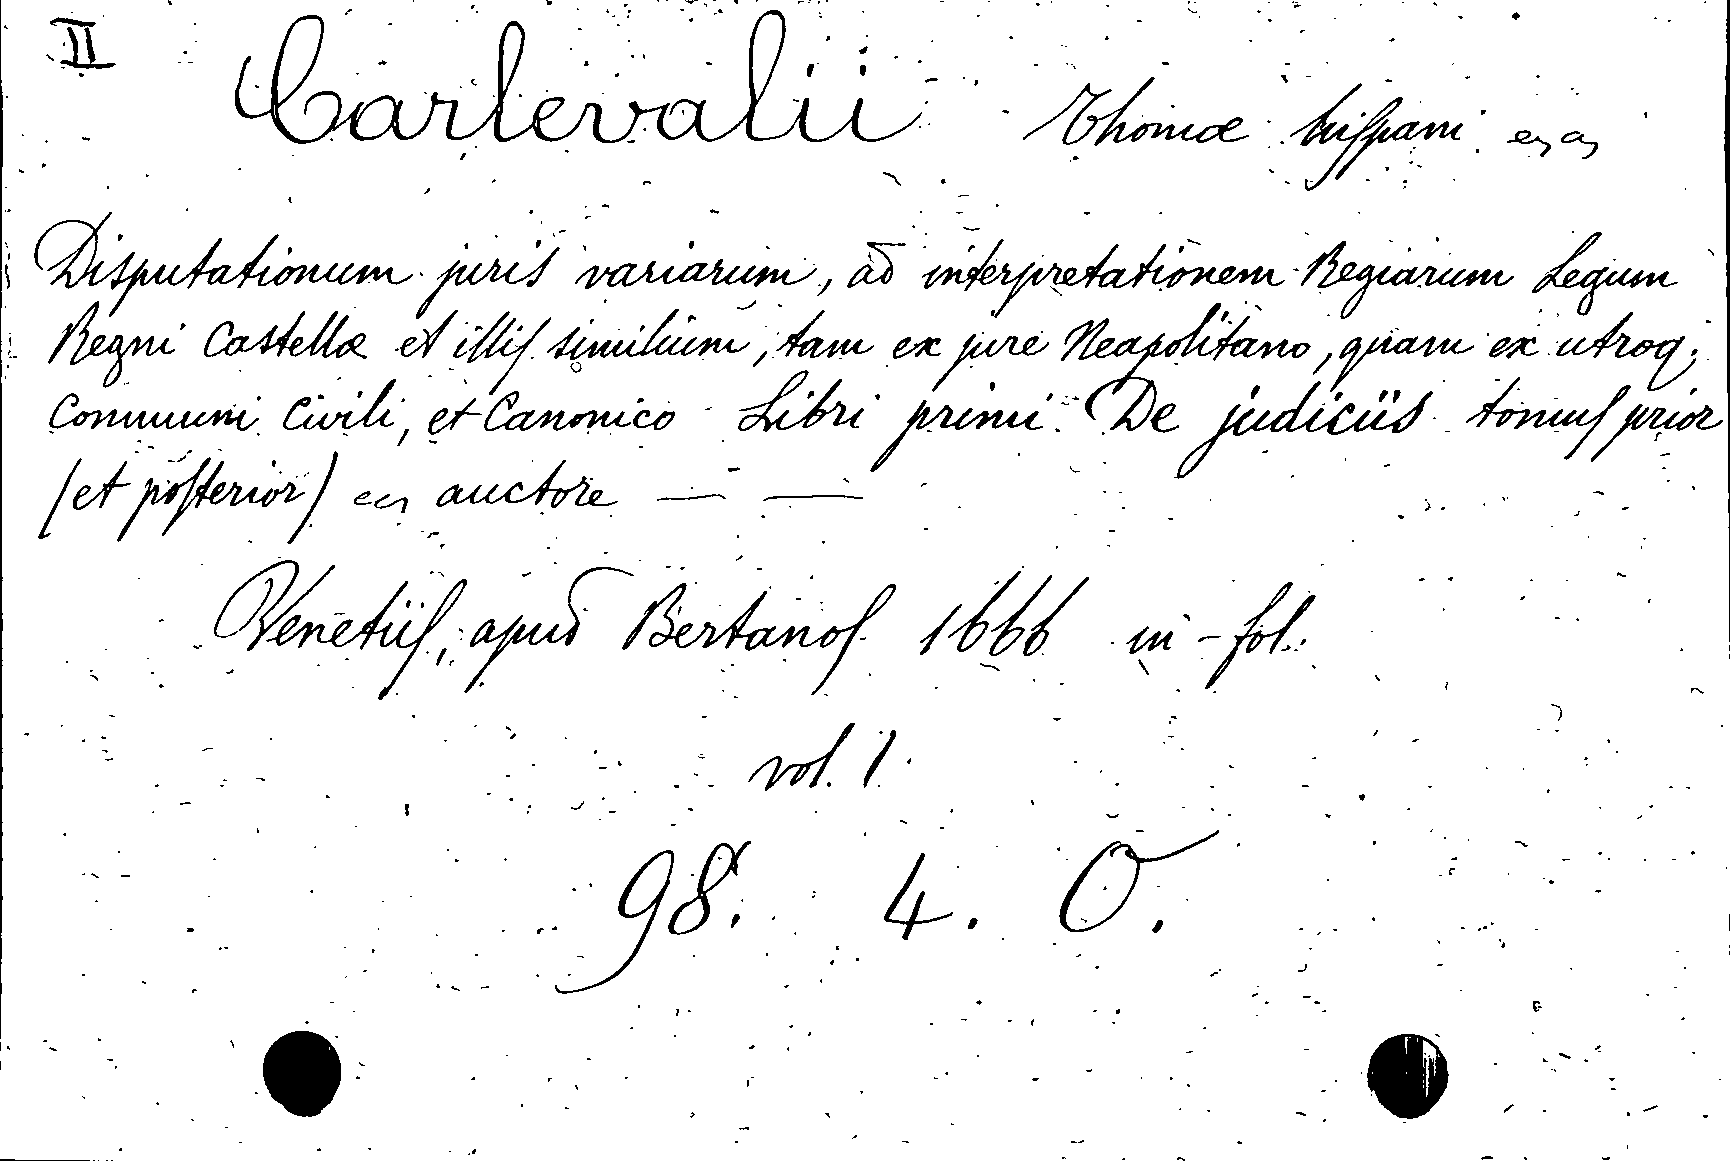 II Carlevalii Thomæ hiſpani
Disputationum juris variarum, ad interpretationem Regiarum Legum
Regni Castellæ et illiſ similium, tam ex jure Neapolitano, quam ex utroq;
Communi Civili, et Canonico Libri primi. De judiciis tomuſ prior
(et poſterior) auctore — —
Venetiiſ, apud Bertanoſ 1666 in-fol.
vol. 1.
98. 4. O.